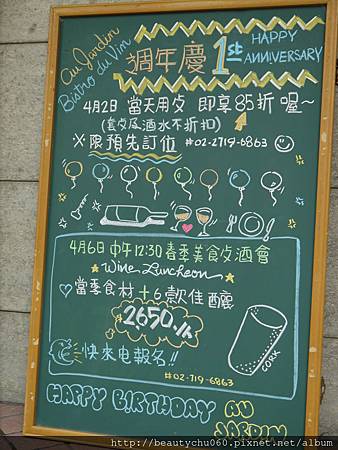 Au Jardin
Bistro du Vin
週年慶 1st
HAPPY
ANNIVERSARY
4月2日 當天用攵 即享85折 喔~
(套攵及酒水不折扣)
※限預先訂位 #02-2719-6863
4月6日 中午12:30 春季美食攵酒會
Wine Luncheon
當季食材+6款佳釀
$2650./人
快來电報名!!
#02-719-6863
CORK
HAPPY BIRTHDAY AU
JARDIN
http://beautychu060.pixnet.net/album